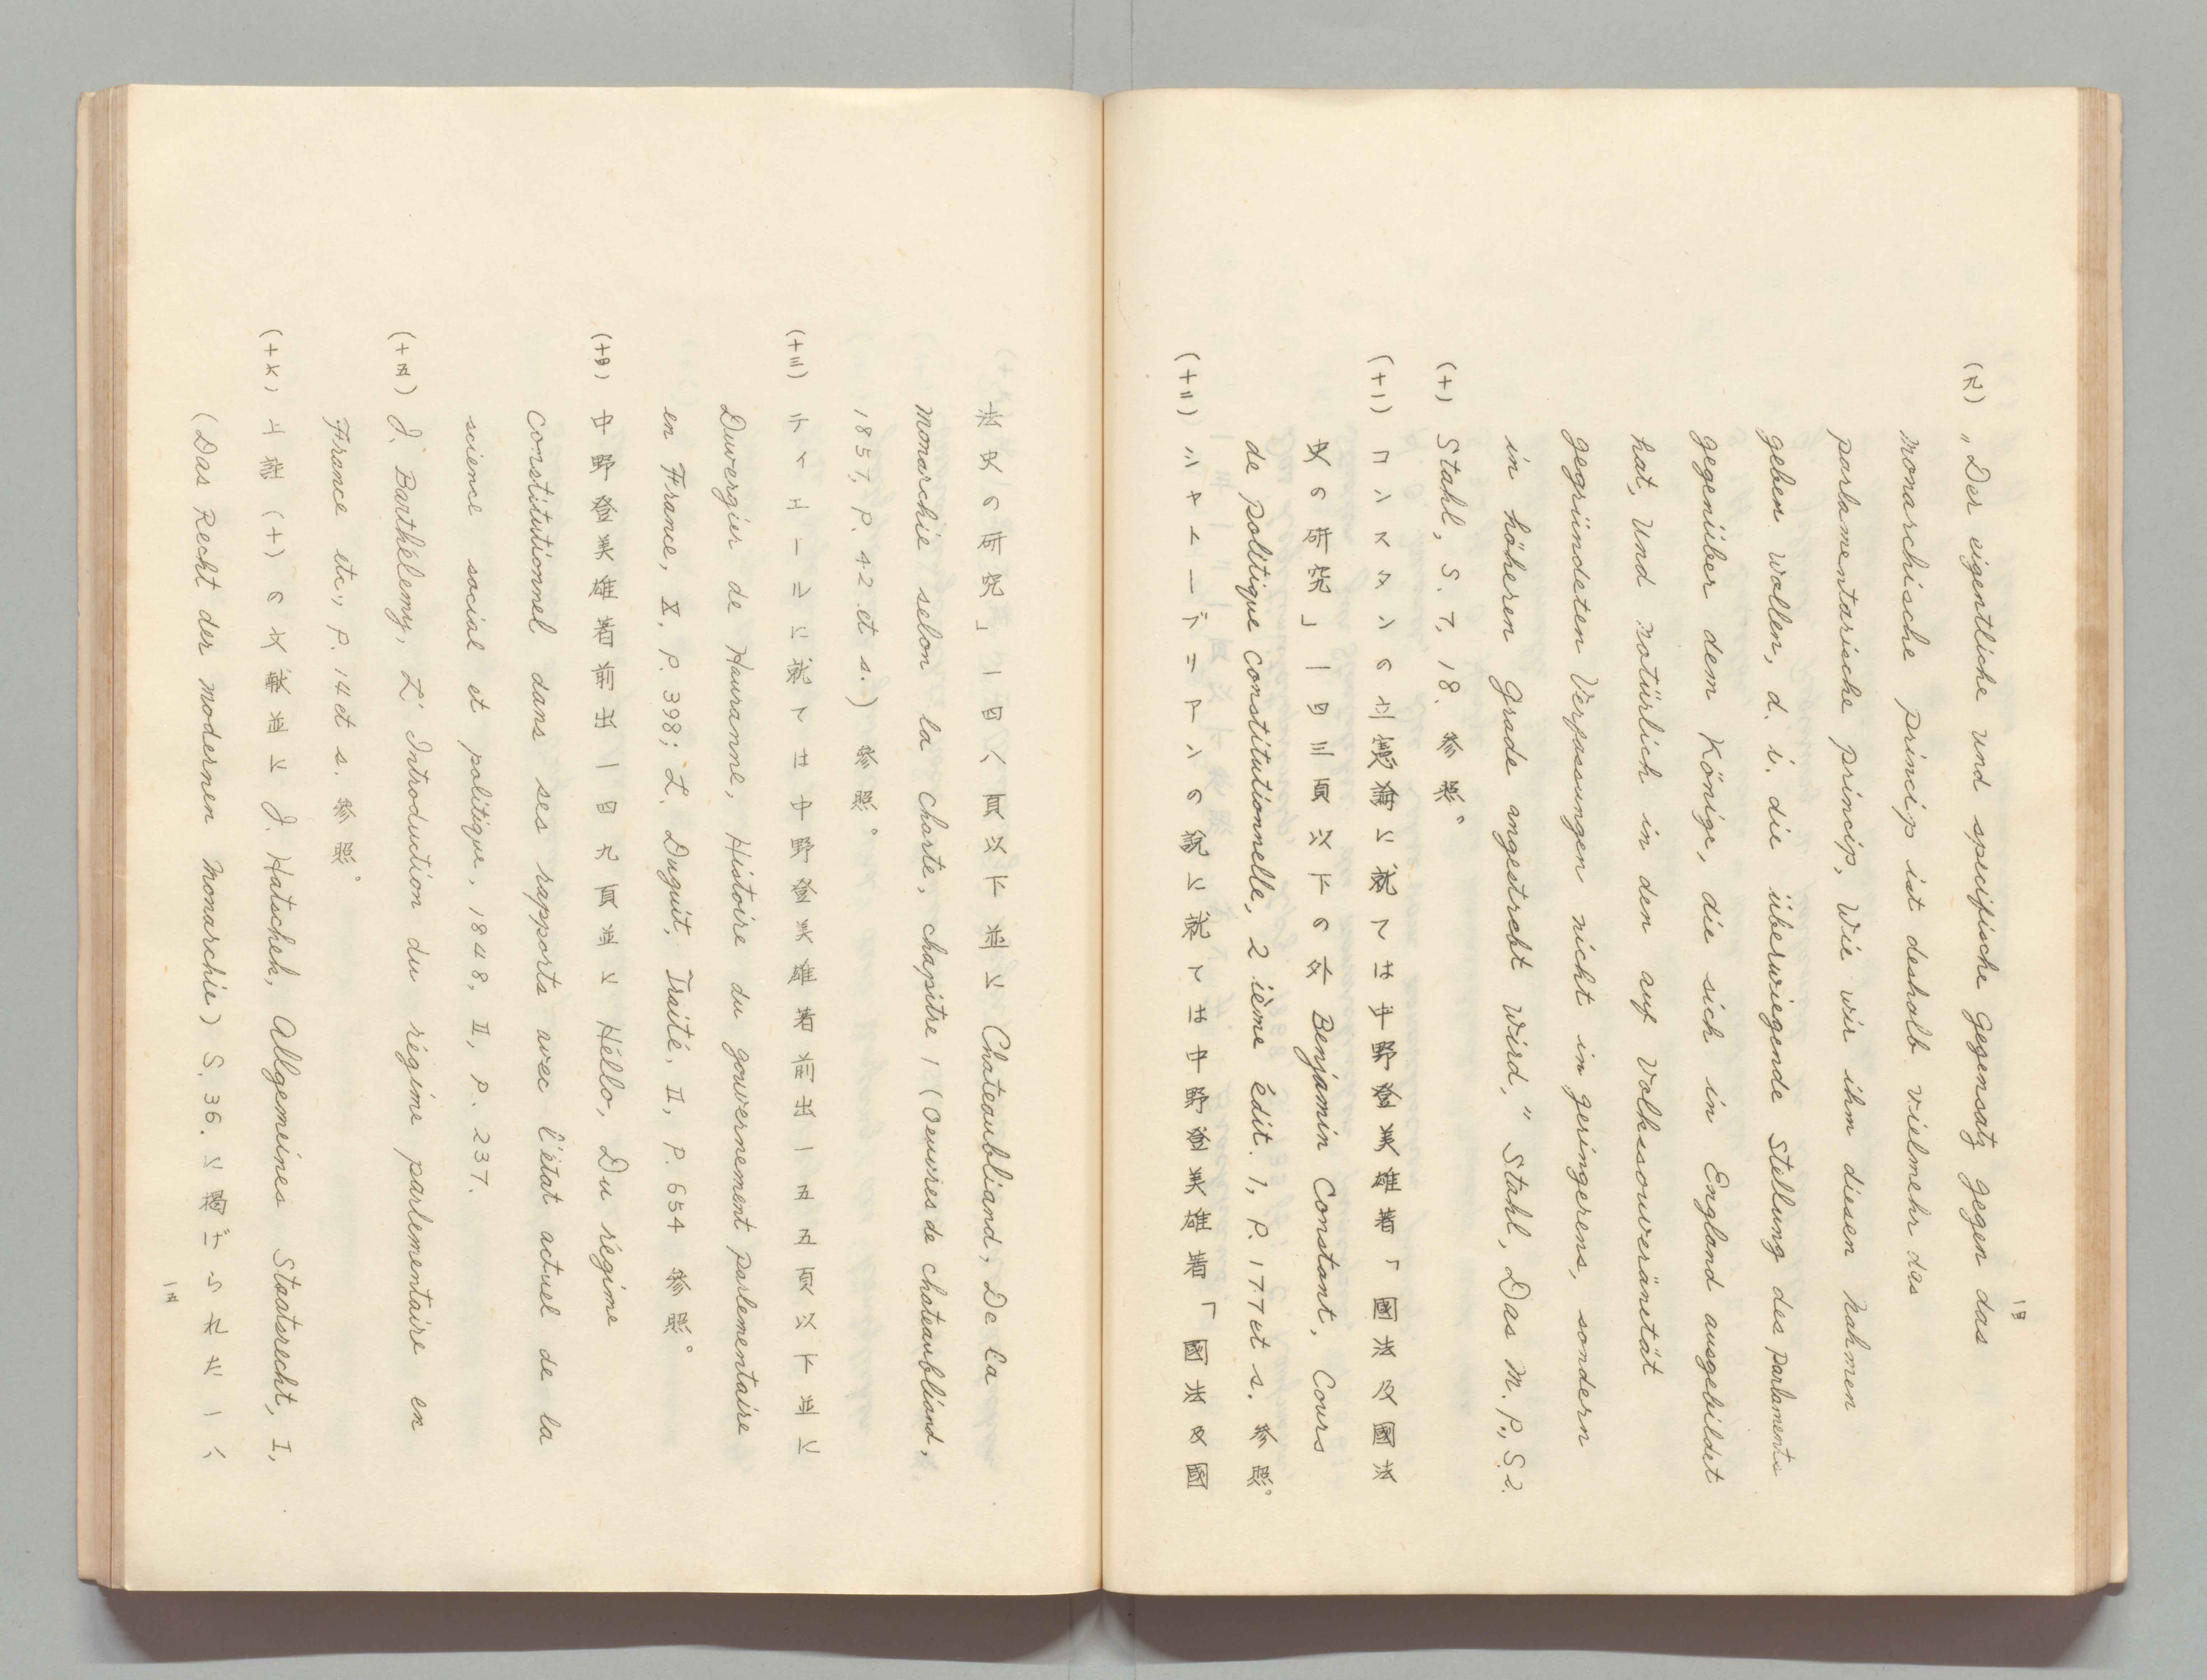 一四
(九) „Der eigentliche und specifische Gegensatz gegen das
monarchische Princip ist deshalb vielmehr das
parlamentarische Princip, Wie wir ihm diesen Nahmen
geben wollen, d. i. die überwiegende Stellung des Parlaments
gegenüber dem Könige, die sich in England ausgebildet
hat, und natürlich in den auf Volkssouveränetät
gegründeten Verfassungen nicht in geringerens, sondern
in höheren Grade angestrebt wird,“ Stahl, Das M. P., S. 2.
(十) Stahl, S. 7, 18. 参照。
(十一) コンスタンの 論に就ては中野登美雄著「國法及國法
史の研究」一四三頁以下の外 Benjamin Constant, Cours
de politique constitutionnelle, 2 ième édit. 1, P. 177 et s. 参照。
(十二) シャトーブリアンの説に就ては中野登美雄著「國法及國
法史の研究」一四八頁以下並に Chateaubliand, De la
monarchie selon la charte, chapitre 1 (Oeuvres de chateaubliand,
1857, P. 42 et s.) 参照。
(十三) ティエールに就ては中野登美雄著前出一五五頁以下並に
Duvergier de Hauranne, Histoire du gouvernement parlementaire
en France, X. P. 398; L. Duguit, Traité, II, P. 654 参照。
(十四) 中野登美雄著前出一四九頁並に Héllo, Du régime
constitutionnel dans ses rapports avec l'état actuel de la
science social et politique, 1848, II, P. 237.
(十五) J. Barthélemy, L' Introduction du régime parlementaire en
France etc., P. 14 et s. 参照。
(十六) 上註(十)の文献並に J. Hatschek, Allgemeines Staatsrecht, I,
(Das Recht der modernen Monarchie) S. 36. に揭げられた一八
一五